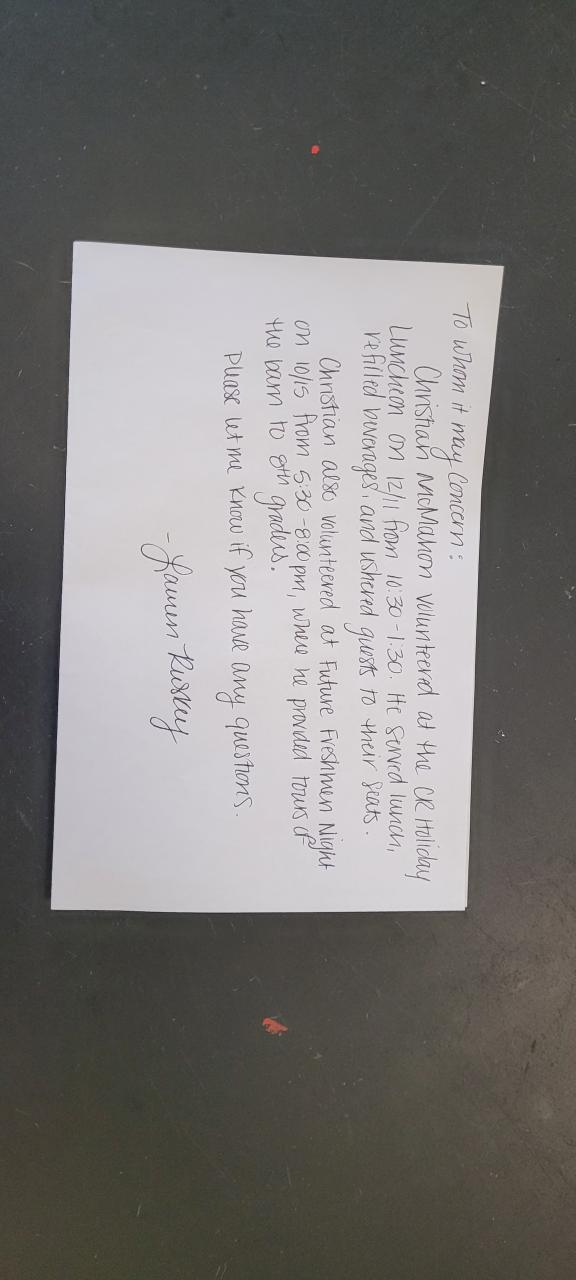 To whom it may concern:
Christian McMahon volunteered at the CR Holiday
Luncheon on 12/11 from 10:30-1:30. He served lunch,
refilled beverages, and ushered guests to their seats.
Christian also volunteered at Future Freshmen Night
on 10/15 from 5:30-8:00pm, where he provided tours of
the barn to 8th graders.
Please let me know if you have any questions.
- Lauren